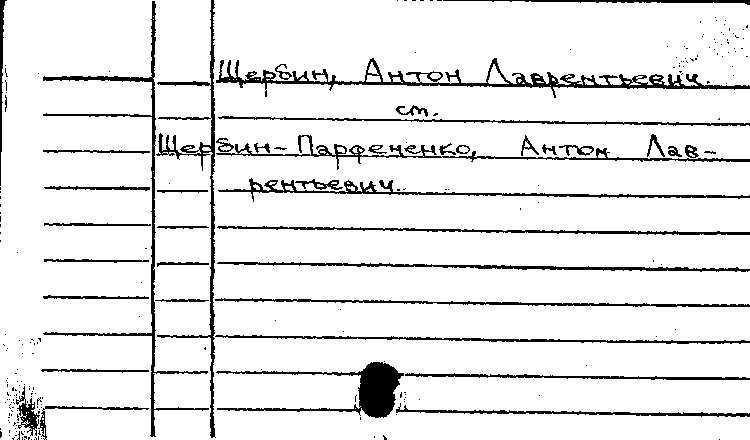 Щербин, Антон Лаврентьевич.
см.
Щербин-Парфененко, Антон Лав-
рентьевич.